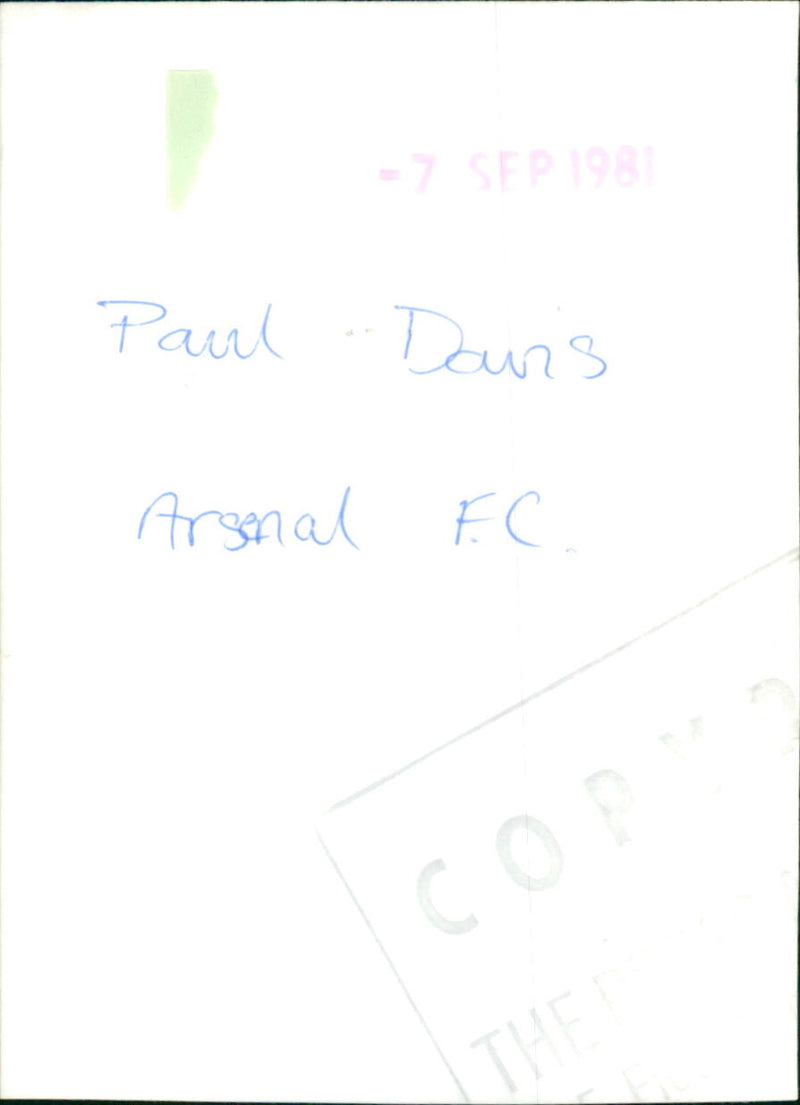 -7 SEP 1981
Paul Davis
Arsenal F.C.
COPY
THE